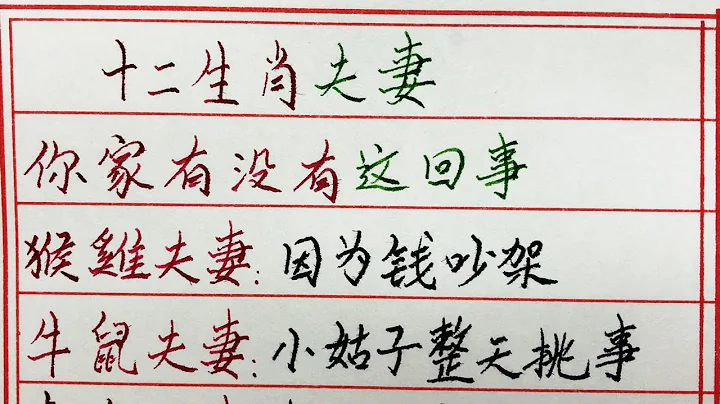 十二生肖夫妻
你家有没有这回事
猴雞夫妻:因为钱吵架
牛鼠夫妻:小姑子整天挑事